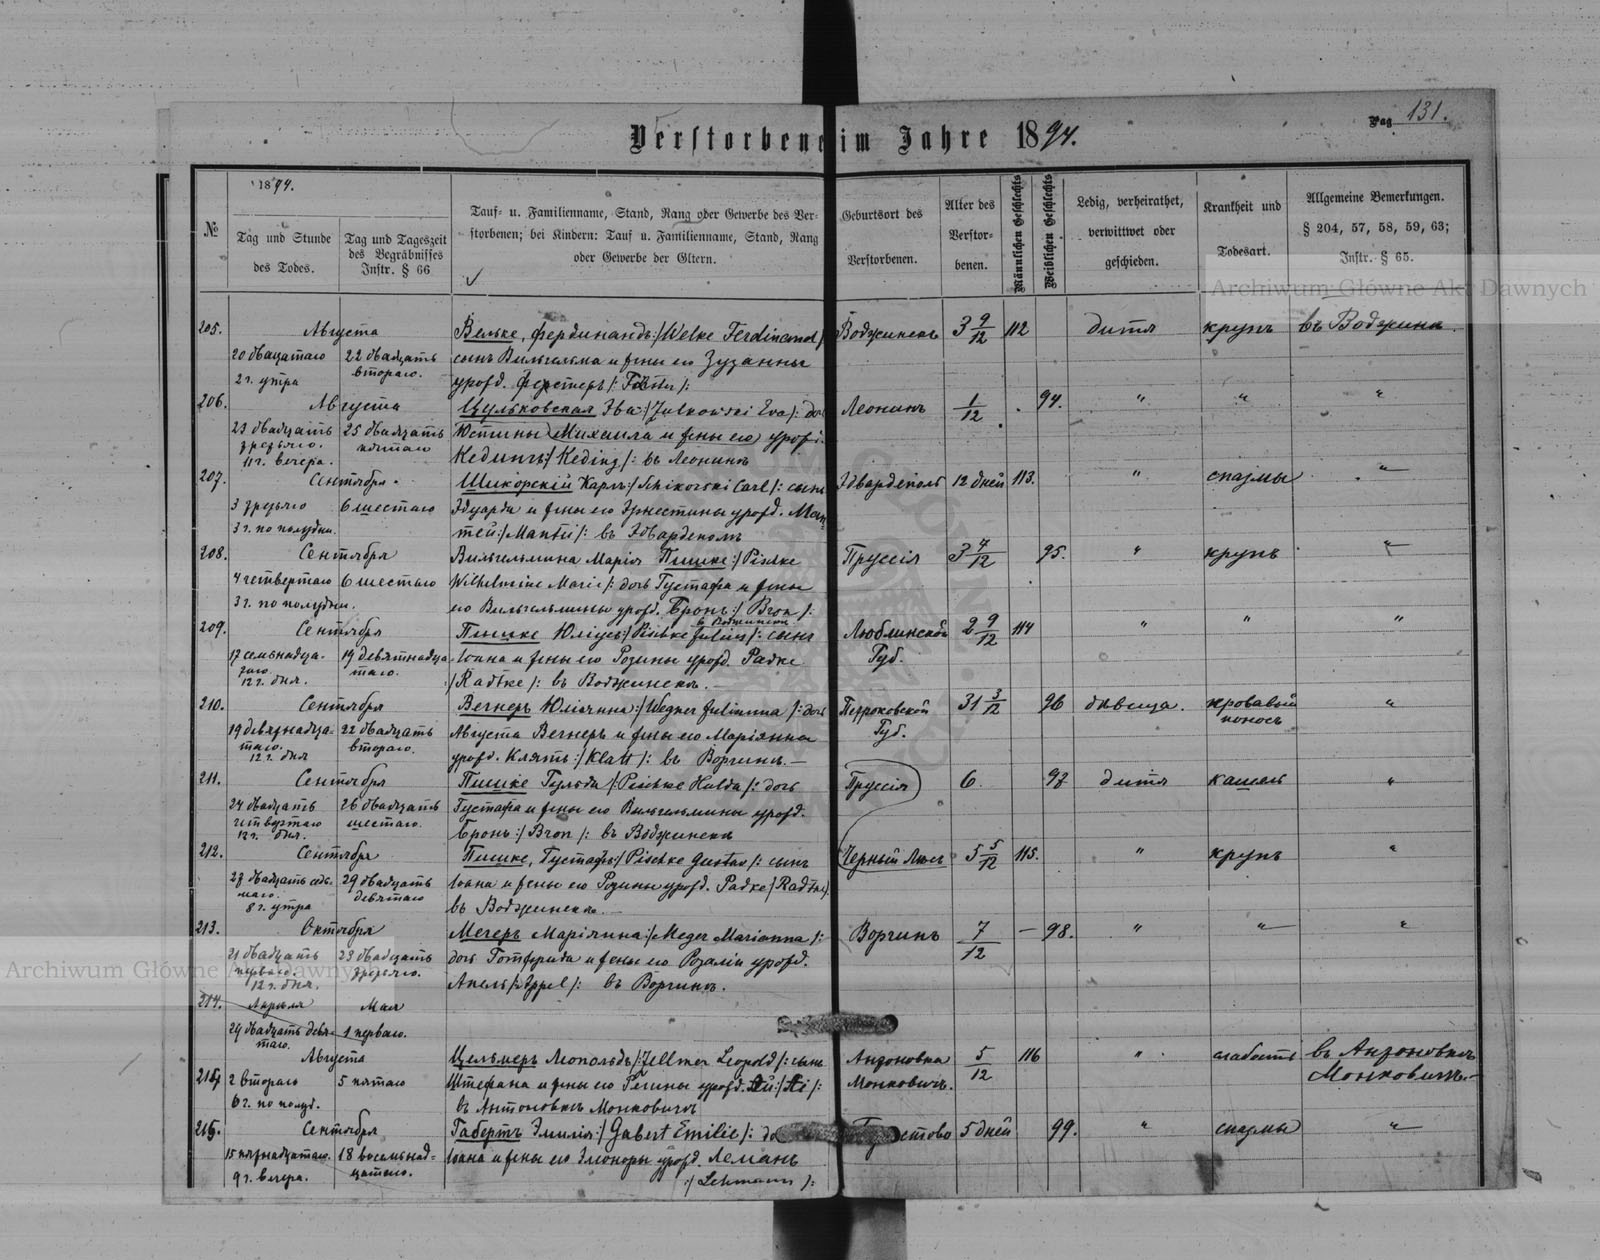 Pag 131.
Verstorbene im Jahre 1894.
№
1894.
Tag und Stunde
des Todes.
Tag und Tageszeit
des Begräbnisses
Instr. § 66
Tauf- u. Familienname, Stand, Rang oder Gewerbe des Ver-
storbenen; bei Kindern: Tauf u. Familienname, Stand, Rang
oder Gewerbe der Eltern.
Geburtsort des
Verstorbenen.
Alter des
Verstor-
benen.
Männlichen Geschlechts
Weiblichen Geschlechts
Ledig, verheirathet,
verwittwet oder
geschieden.
Krankheit und
Todesart.
Allgemeine Bemerkungen.
§ 204, 57, 58, 59, 63;
Instr. § 65.
205. Августа Вельке, Фердинандъ:/Welke Ferdinand/ Водзинекъ 3 9/12 112 дитя крупъ въ Водзинк
20 двадцатаго 22 двадцать сынъ Вильгельма и жены его Зузанны
2 г. утра втораго. урожд. Ферстеръ
206. Августа Цульковская Эва:/Zulkowski Eva/: дочь Леонинъ 1/12 94. " " "
23 двадцать 25 двадцать Юстины Михаила и жены его урожд.
11 г. вечера. пятаго Кедингъ:/Keding/: въ Леонинъ
207. Сентября Шикорскій Карлъ:/Schikorski Carl/: сынъ Эдвардполь 12 дней 113. " спазмы "
3 третьяго 6 шестаго Эдуарда и жены его Эрнестины урожд. Ман
3 г. по полудни. тей:/Mantei/: въ Эдвардполъ
208. Сентября Вильгельмина Марія Пишке:/Pischke Пруссія 3 7/12 95. " крупъ "
4 четвертаго 6 шестаго Wilhelmine Marie/: дочь Густафа и жены
3 г. по полудни. его Вильгельмины урожд. Бронъ:/Bron/:
209. Сентября Пишке Юліусъ:/Pischke Julius/: сынъ Люблинской 2 9/12 114 " " "
17 семьнадца- 19 девятнадца- Іоана и жены его Розины урожд. Радке Губ.
таго
12 г. дня. таго. :/Radtke/: въ Водзинекъ.
210. Сентября Вегнеръ Юліянна:/Wegner Julianna/: дочь Петроковской 31 3/12 96 дѣвица. кровавый "
19 девятнадца- 22 двадцать Августа Вегнеръ и жены его Маріянны Губ. поносъ
таго.
12 г. дня втораго. урожд. Клятъ:/Klatt/: въ Воргинъ.
211. Сентября Пишке Гульда:/Pischke Hulda/: дочь Пруссія 6. 97 дитя кашель "
24 двадцать 26 двадцать Густафа и жены его Вильгельмины урожд.
четвертаго
12 г. дня. шестаго. Бронъ:/Bron/: въ Водзинекъ
212. Сентября Пишке, Густафъ:/Pischke Gustav/: сынъ Черный Лясъ 5 5/12 115. " крупъ "
29 двадцать Іоана и жены его Розины урожд. Радке/Radtke/
8 г. утра девятаго въ Водзинекъ.
213. Октября Мегеръ Маріянна:/Meger Marianna/: Воргинъ 7/12 — 98. " " "
21 двадцать 23 двадцать дочь Готфрида и жены его Розаліи урожд.
перваго.
12 г. дня. третьяго. Апель:/Appel/: въ Воргинъ.
214. Апрѣля Мая
29 двадцать девя- 1 перваго.
таго.
Августа Цельмеръ Леопольдъ:/Zellmer Leopold/: сынъ Антоновка 5/12 116 " слабость въ Антоновкъ
214 2 втораго 5 пятаго Штефана и жены его Регины урожд. Монковичъ. Монковичъ.
6 г. по полуд. въ Антоновкъ Монковичъ
215. Сентября Габертъ Эмилія:/Gabert Emilie/: 5 дней 99. " спазмы "
15 пятнадцатаго. 18 восемьнад- Іоана и жены его Элеоноры урожд. Леманъ
9 г. вечера. цатаго. :/Lehmann/:
Archiwum Główne Akt Dawnych
Archiwum Główne Akt Dawnych